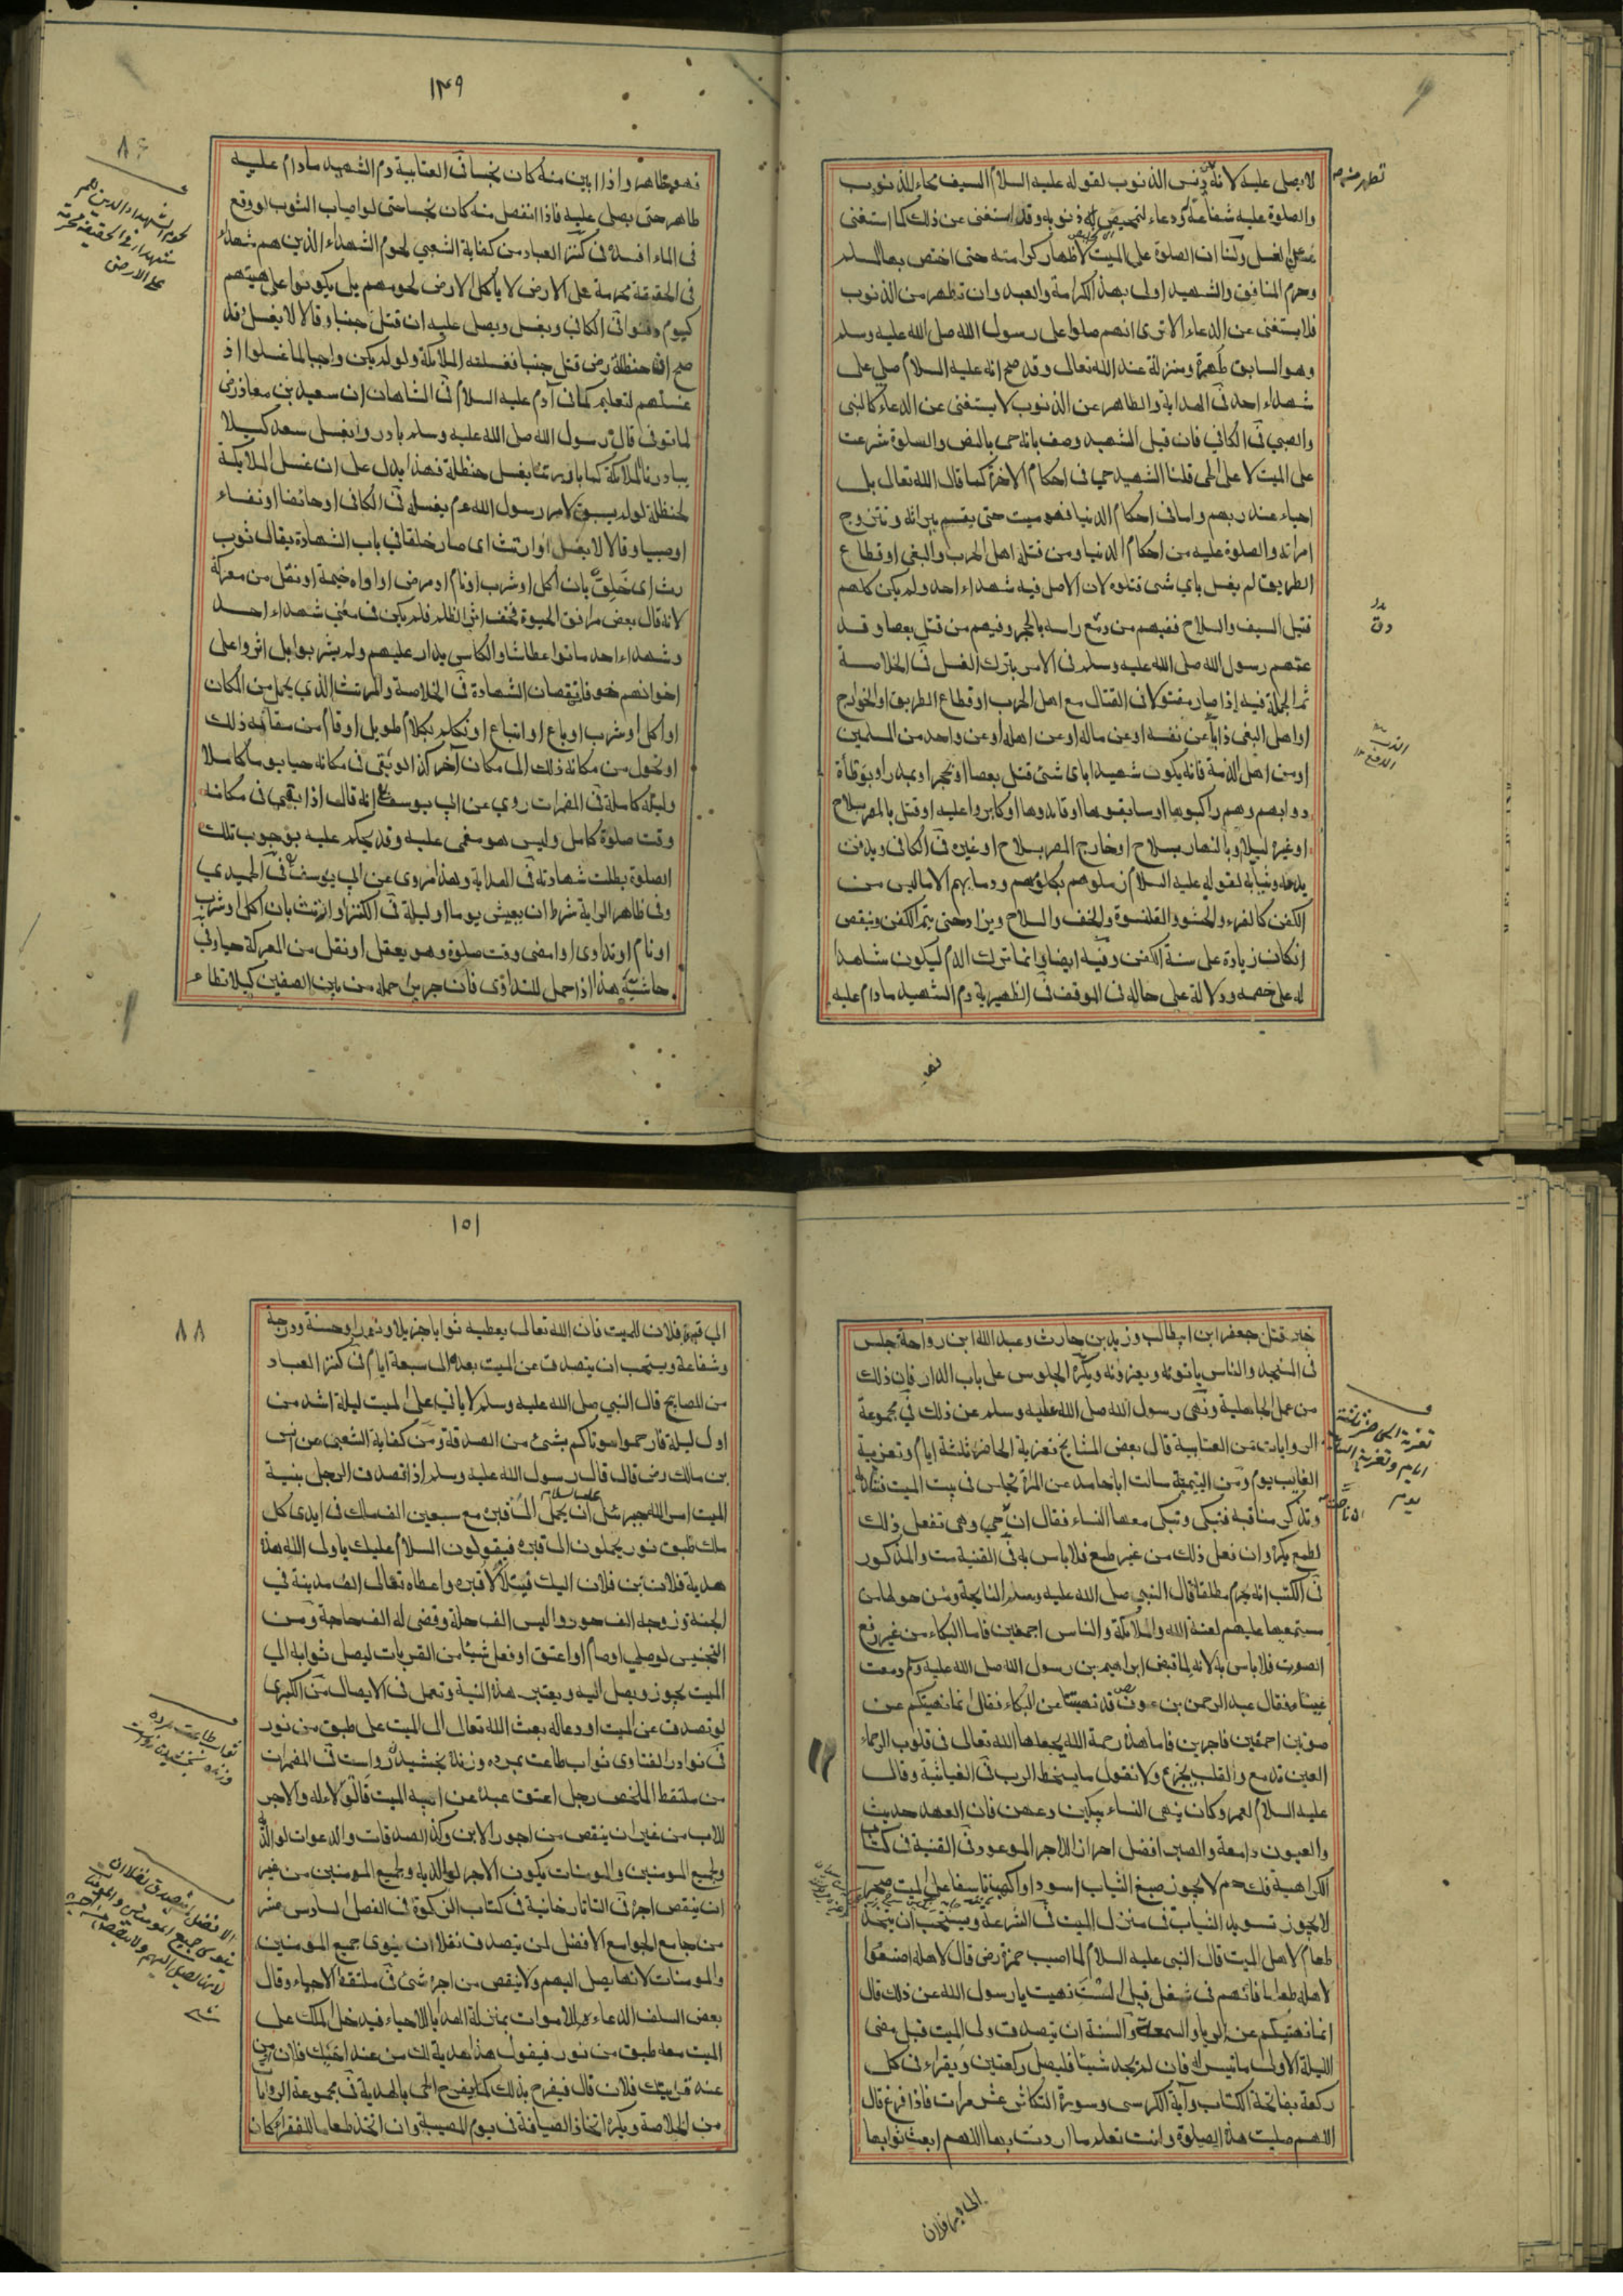 لا يصلى عليه لانه دنس الذنوب لقوله عليه السلام السيف محاء للذنوب
والصلوة عليه شفاعة ودعاء لتمحيص ذنوبه وقد استغنى عن ذلك كما استغنى
عن الغسل ولنا ان الصلوة على الميت لاظهار كرامته حتى اختص بها المسلم
وحرم المنافق والشهيد اولى بهذه الكرامة والعبد وان تطهر من الذنوب
فلا يستغنى عن الدعاء الا ترى انهم صلوا على رسول الله صلى الله عليه وسلم
وهو السابق طهرة ومنزلة عند الله تعالى وقد صح انه عليه السلام صلى على
شهداء احد فى الهداية والطاهر عن الذنوب لا يستغنى عن الدعاء كالنبى
والصبي فى الكافي فان قيل الشهيد وصف بانه حى بالنص والصلوة شرعت
على الميت لا على الحى قلنا الشهيد حي فى احكام الاخرة كما قال الله تعالى بل
احياء عند ربهم واما فى احكام الدنيا فهو ميت حتى يقسم ميراثه وتتزوج
امراته والصلوة عليه من احكام الدنيا ومن قتله اهل الحرب والبغى او قطاع
الطريق لم يغسل باي شى قتلوه لان الاصل فيه شهداء احد ولم يكن كلهم
قتيل السيف والسلاح ففيهم من دمغ راسه بالحجر وفيهم من قتل بعصا وقد
عمهم رسول الله صلى الله عليه وسلم فى الامر بترك الغسل فى الخلاصة
ثم الجملة فيه اذا صار مقتولا فى القتال مع اهل الحرب او قطاع الطريق او الخوارج
او اهل البغى ذابا عن نفسه او عن ماله او عن اهله او عن واحد من المسلمين
او من اهل الذمة فانه يكون شهيدا باى شئ قتل بعصا او بحجر او بمدر او بوطأة
دوابهم وهم راكبوها او سايقوها او قايدوها او كابروا عليه او قتل بالمصر بسلاح
او غيره ليلا وبالنهار بسلاح او خارج المصر بسلاح او غيره فى الكافى ويدفن
بدمه وثيابه لقوله عليه السلام زملوهم بكلومهم ودمايهم الا ما ليس من
الكفن كالفرء والحشو والقلنسوة والخف والسلاح ويزاد حتى يتم الكفن وينقص
ان كان زيادة على سنة الكفن وفيه ايضا وانما ترك الدم ليكون شاهدا
له على خصمه ودلالة على حاله فى الموقف فى الظهيرية دم الشهيد مادام عليه
١٣٩
٨٦
فهو طاهر واذا ابين منه كان نجسا فى العتابية دم الشهيد مادام عليه
طاهر حتى يصلى عليه فاذا انفصل منه كان نجسا حتى لو اصاب الثوب لو وقع
فى الماء افسده فى كنز العباد من كفاية الشعبي لحوم الشهداء الذين هم شهداء
فى الحقيقة محرمة على الارض لا يأكل الارض لحومهم بل يكونوا على هيئتهم
كيوم دفنوا فى الكافي ويغسل ويصلى عليه ان قتل جنبا وقالا لا يغسل وقد
صح ان حنظلة رضى قتل جنبا فغسلته الملائكة ولو لم يكن واجبا لما غسلوا اذ
غسلهم لتعليم كما فى آدم عليه السلام فى الشاهان ان سعيد بن معاذ رضى
لما توفى قال رسول الله صلى الله عليه وسلم بادروا بغسل سعد كيلا
يبادرنا الملائكة كما بادرتنا بغسل حنظلة فهذا يدل على ان غسل الملائكة
لحنظلة لو لم يسبق لامر رسول الله عم بغسله فى الكافى او حائضا او نفساء
او صبيا وقالا لا يغسل او ارتث اى صار خلقا في باب الشهادة يقال ثوب
رث اى خلق بان اكل او شرب او نام او مرض او اواه خيمة او نقل من معركة
لانه قال بعض مرافق الحيوة فخف اثر الظلم فلم يكن فى معنى شهداء احد
وشهداء احد ماتوا عطاشا والكاس يدار عليهم ولم يشربوا بل اثروا على
اخوانهم خوفا نقصان الشهادة فى الخلاصة والمرتث الذي يحمل من المكان
او اكل او شرب او باع او ابتاع او تكلم بكلام طويل او قام من مقامه ذلك
او تحول من مكانه ذلك الى مكان آخر كذا لو بقى فى مكانه حيا يوما كاملا
وليلة كاملة فى المضمرات روي عن ابى يوسف انه قال اذا بقى فى مكانه
وقت صلوة كامل وليس هو مغمى عليه وقد يحكم عليه بوجوب تلك
الصلوة بطلت شهادته فى الهداية وهذا مروى عن ابى يوسف فى الحميدي
وفى ظاهر الراية شرط ان يعيش يوما او ليلة فى الكنز او ارتث بان اكل او شرب
او نام او تداوى او امضى وقت صلوة وهو يعقل او نقل من المعركة حيا وفى
حاشية هذا اذا حمل للتداوى فان جر من حمله من بين الصفين كيلا تطاء
١٥١
٨٨
خبر قتل جعفر ابن ابيطالب وزيد بن حارث وعبد الله ابن رواحة جلس
فى المسجد والناس ياتونه ويعزونه ويكره الجلوس على باب الدار فان ذلك
من عمل الجاهلية ونهى رسول الله صلى الله عليه وسلم عن ذلك في مجموعة
الروايات من العتابية قال بعض المشايخ تعزية الحاضر ثلثة ايام وتعزية
الغايب يوم ومن اليتيمة سالت اباحامد عن المراة تجلس فى بيت الميت
وتذكر مناقبه فتبكى وتبكى معها النساء فقال ان حمي وهى تفعل ذلك
لطمع يكره وان فعل ذلك من غير طمع فلا باس به فى القنية مت والمذكور
فى الكتب انه يحرم مطلقا قال النبى صلى الله عليه وسلم النايحة ومن حولها من
مستمعيها عليهم لعنة الله والملائكة والناس اجمعين فاما البكاء من غير رفع
الصوت فلا باس به لانه لما قبض ابراهيم بن رسول الله صلى الله عليه وسلم دمعت
عيناه فقال عبد الرحمن بن عوف قد نهيتنا عن البكاء فقال انما نهيتكم عن
صوتين احمقين فاجرين فاما هذه رحمة الله يجعلها الله تعالى فى قلوب الرحماء
العين تدمع والقلب يجزع ولا نقول ما يسخط الرب فى الغياثية وقال
عليه السلام لعمر وكان ينهى النساء يبكين دعهن فان العهد حديث
والعيون دامعة والصبر افضل احرازا للاجر الموعود فى القنية فى كتاب
الكراهية لا يجوز صبغ الثياب اسود او اكهب تاسفا على الميت
لا يجوز تسويد الثياب فى منزل الميت فى الشرعة ويستحب ان يتخذ
طعام لاهل الميت قال النبى عليه السلام لما اصيب حمزة رضى قال لاهله اصنعوا
لاهله طعاما فانهم فى شغل قيل الست نهيت يا رسول الله عن ذلك قال
انما نهيتكم عن الريا والسمعة والسنة ان يتصدق ولى الميت قبل مضى
الليلة الاولى ماتيسر له فان لم يجد شيئا فليصل ركعتين ويقراء فى كل
ركعة بفاتحة الكتاب وآية الكرسى وسورة التكاثر عشر مرات فاذا فرغ قال
اللهم صليت هذه الصلوة وانت تعلم ما اردت بها اللهم ابعث ثوابها
الى قبر فلان
الى قبره فلان الميت فان الله تعالى يعطيه ثوابا جزيلا ونورا وحسنة ودرجة
وشفاعة ويستحب ان يتصدق عن الميت بعده الى سبعة ايام فى كنز العباد
من المصابيح قال النبي صلى الله عليه وسلم لا ياتي على الميت ليلة اشد من
اول ليلة فارحموا موتاكم بشئ من الصدقة ومن كفاية الشعبى عن انس
بن مالك رضى قال قال رسول الله عليه وسلم اذا تصدق الرجل بنية
الميت امر الله جبرئل ان يحمل الى قبره مع سبعين الف ملك فى ايدى كل
ملك طبق نور يحملون الى قبره فيقولون السلام عليك يا ولى الله هذه
هدية فلان بن فلان اليك فيتلألأ قبره واعطاه تعالى الف مدينة في
الجنة وزوجه الف حور والبس الف حلة وقضى له الف حاجة ومن
التجنيس لو صلى او صام او اعتق او فعل شيئا من القربات ليصل ثوابه الى
الميت يجوز ويصل اليه ويعتبر هذه النية وتعمل فى الايصال من الكبرى
لو تصدق عن الميت او دعا له بعث الله تعالى الى الميت على طبق من نور
فى نوادر الفتاوى ثواب طاعت بمرده وزنده بخشيدن رواست فى المضمرات
من ملتقط الملخص رجل اعتق عبده عن ابيه الميت قالوا الولاء له والاجر
للاب من غير ان ينقص من اجور الابن وكذا الصدقات والدعوات لوالديه
ولجميع المومنين والمومنات يكون الاجر لوالديه ولجميع المومنين من غير
ان ينقص اجره فى التاتارخانية فى كتاب الزكوة فى الفصل السادس عشر
من جامع الجوامع الافضل لمن يتصدق نفلا ان ينوى جميع المومنين
والمومنات لانها يصل اليهم ولا ينقص من اجره شئ فى ملتقط الاحياء وقال
بعض السلف الدعاء للاموات بمنزلة الهدايا للاحياء فيدخل الملك على
الميت معه طبق من نور فيقول هذه هدية لك من عند اخيك فلان من
عند قريبك فلان قال فيفرح بذلك كما يفرح الحى بالهدية فى مجموعة الروايا
من الخلاصة ويكره اتخاذ الضيافة فى يوم المصيبة وان اتخذ طعاما للفقراء كان